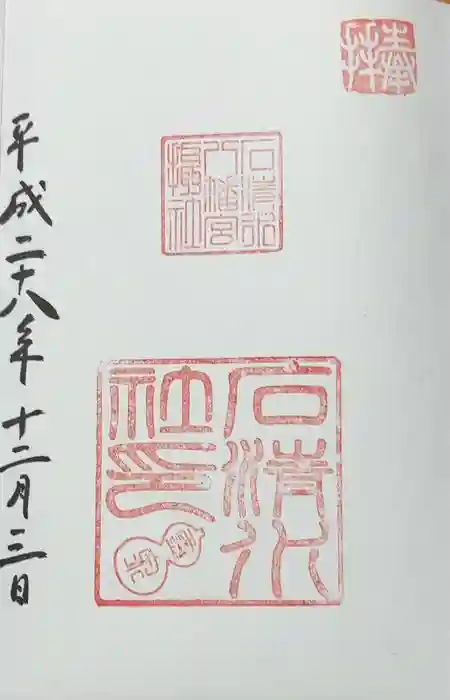 奉拝
石清水
八幡宮
摂社
石清水
社印
平成二十八年 十二月三日